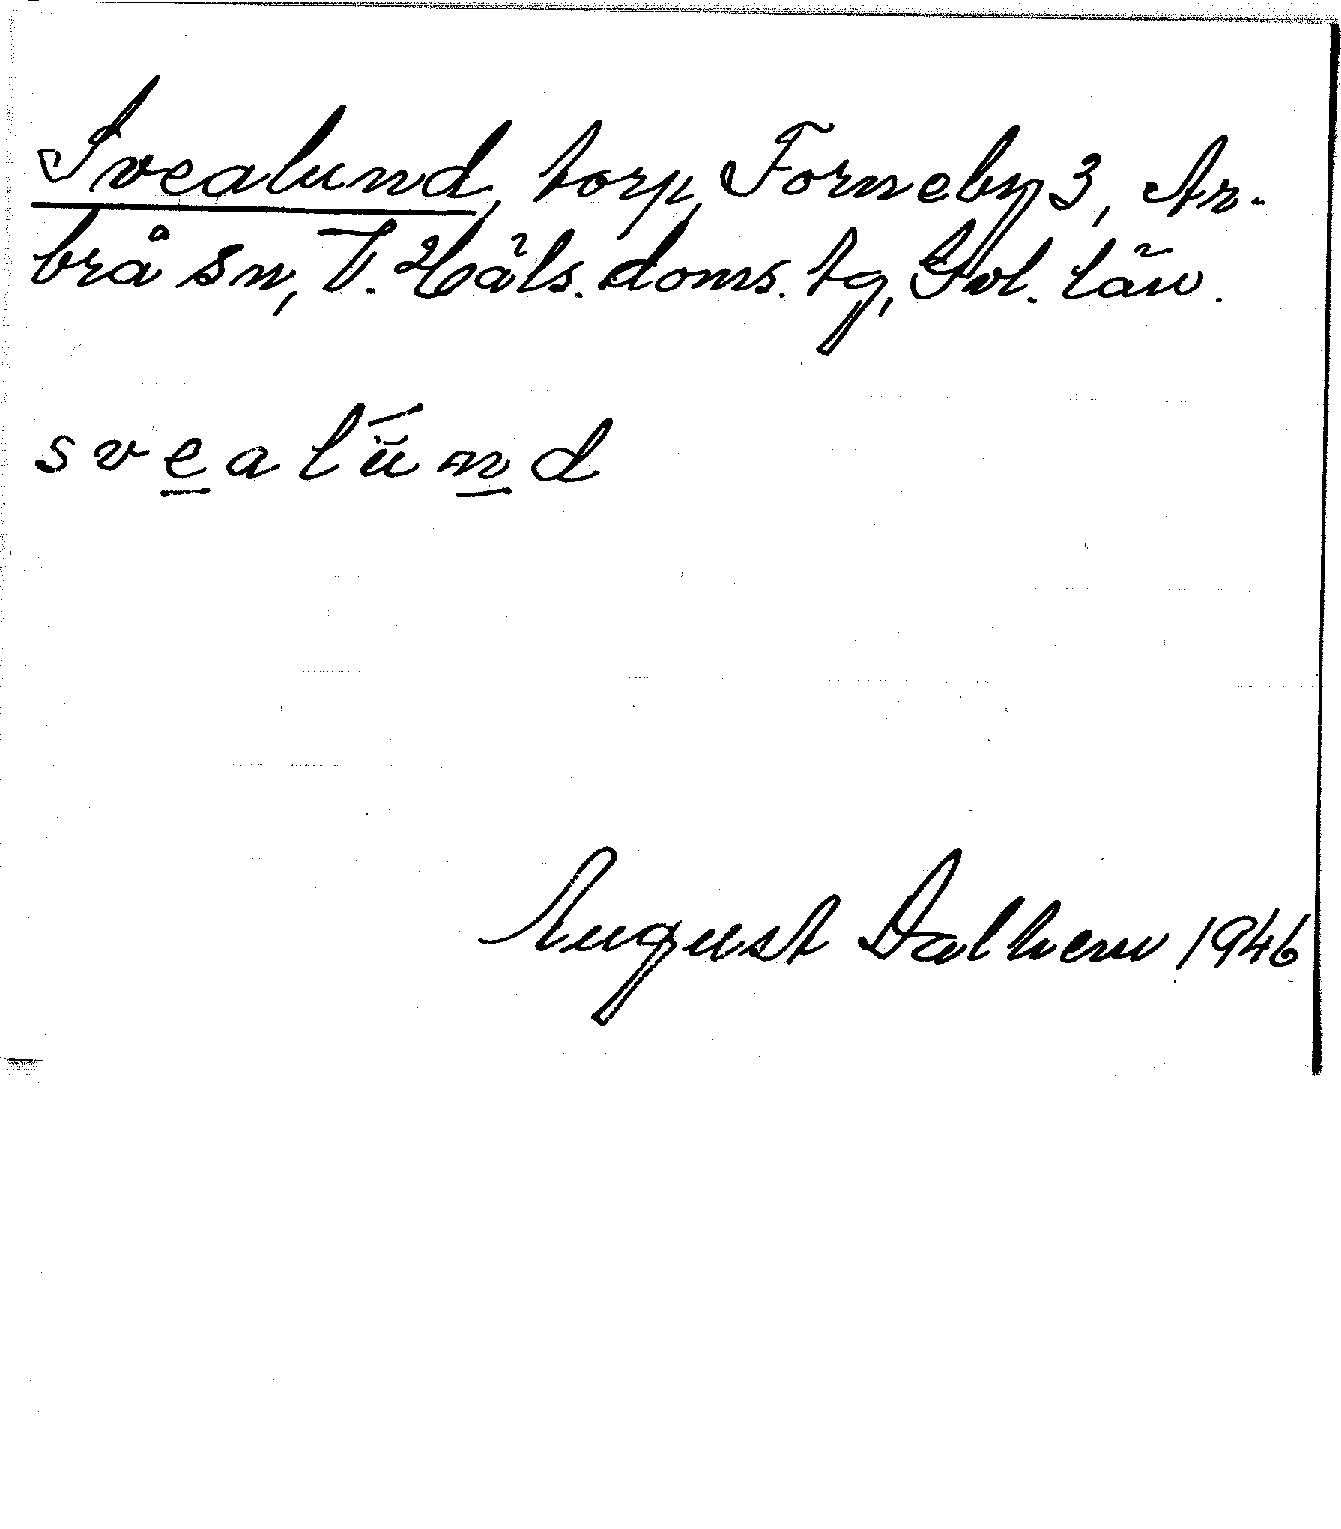 Svealund, torp, Forneby 3, Ar-
brå sn, V. Häls. doms. tg, Gvl. län.
svealund
August Dalhem 1946